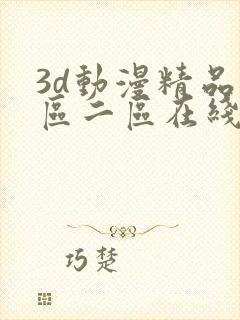 3d動漫精品
區二區在綫
巧楚